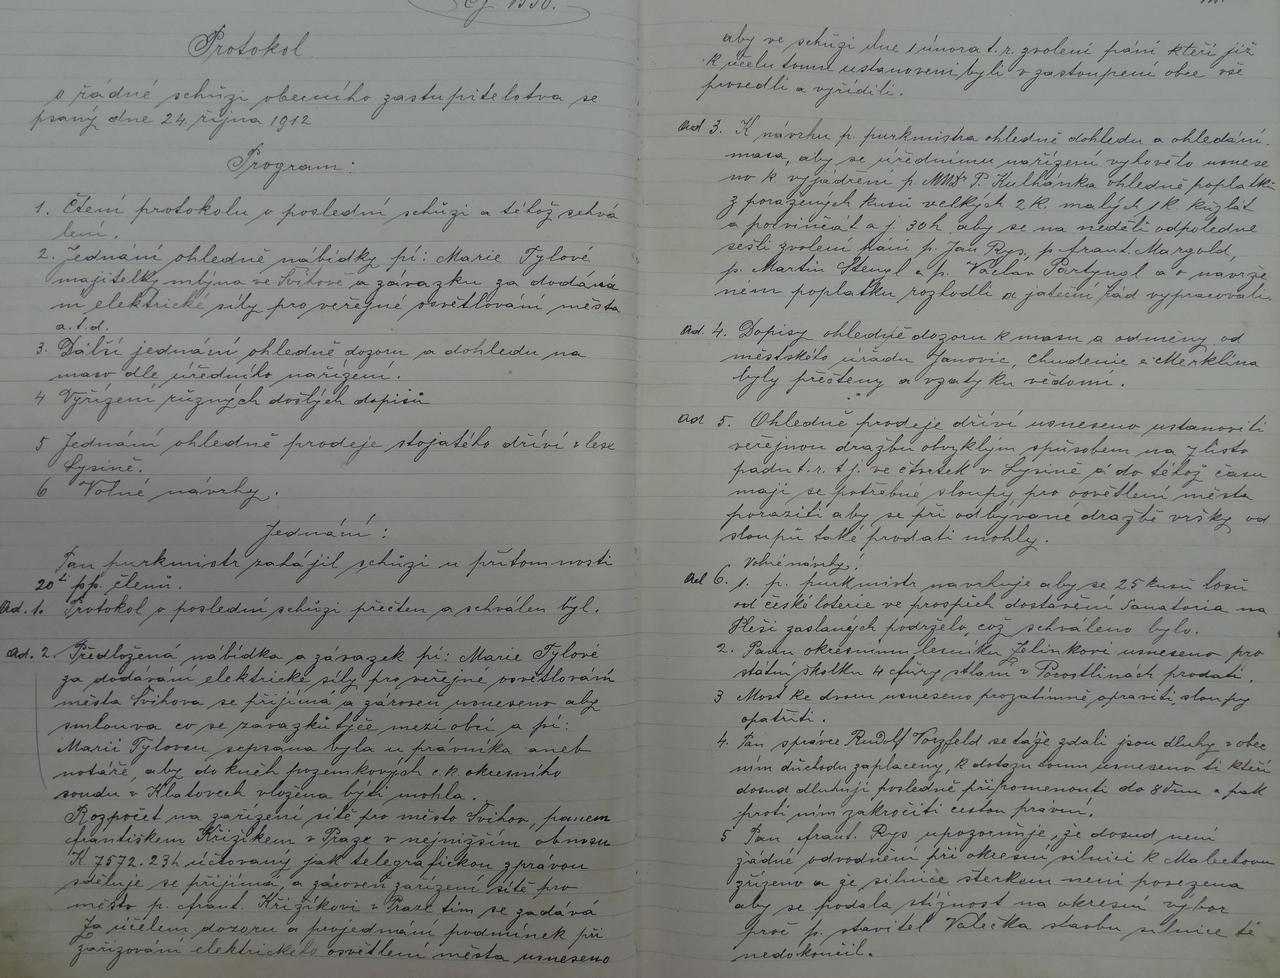 Protokol
o řádné schůzi obecního zastupitelstva se
psaný dne 24. října 1912
Program:
1. Čtení protokolu o poslední schůzi a téhož schvá
lení.
2. Jednání ohledně nabídky pí: Marie Tylové
majitelky mlýna ve Švihově a závazku za dodává
ní elektrické síly pro veřejné osvětlování města
a.t.d.
3. Další jednání ohledně dozoru a dohledu na
maso dle úředního nařízení.
4 Vyřízení různých došlých dopisů
5 Jednání ohledně prodeje stojatého dříví v lese
Lysině.
6 Volné návrhy.
Jednání:
Pan purkmistr zahájil schůzi u přítomnosti
20ti pp. členů.
Ad. 1. Protokol o poslední schůzi přečten a schválen byl.
Ad. 2. Předložená nabídka a závazek pí: Marie Tylové
za dodávání elektrické síly pro veřejné osvětlování
města Švihova se přijímá a zároveň usneseno aby
smlouva co se závazků týče mezi obcí a pí:
Marií Tylovou sepsána byla u právníka aneb
notáře, aby do kněh pozemkových c.k. okresního
soudu v Klatovech vložena býti mohla.
Rozpočet na zařízení sítě pro město Švihov, panem
Františkem Křižíkem v Praze v nejnižším obnosu
K 7572.23h účtovaný jak telegrafickou zprávou
sděluje se přijímá, a zároveň zařízení sítě pro
město p. Frant. Křižíkovi v Praze tím se zadává
Za účelem dozoru a projednání podmínek při
zařizování elektrického osvětlení města usneseno
aby ve schůzi dne 1 února t.r. zvolení páni kteří již
k účelu tomu ustanoveni byli v zastoupení obce vše
provedli a vyřídili.
Ad 3. K návrhu p. purkmistra ohledně dohledu a ohledání
masa, aby se úřednímu nařízení vyhovělo usnese
no k vyjádření p. MUDr P. Kulhánka ohledně poplatků
z poražených kusů velkých 2 K. malých 1 K. kůzlat
a polviněat a j. 30 h. aby se na neděli odpoledne
sešli zvolení páni p. Jan Rys, p. Frant. Margold,
p. Martin Stengl a p. Václav Partyngl a o navrže
ném poplatku rozhodli a jateční řád vypracovali.
Ad. 4. Dopisy ohledně dozoru k masu a odměny od
městského úřadu Janovic, Chudenic a Merklína
byly přečteny a vzaty ku vědomí.
Ad 5. Ohledně prodeje dříví usneseno ustanoviti
veřejnou dražbu obvyklým spůsobem na 7 listo
padu t.r. t.j. ve čtvrtek v Lysině a do téhož času
mají se potřebné sloupy pro osvětlení města
poraziti aby se při odbývané dražbě vršky od
sloupů také prodati mohly.
Volné návrhy:
Ad 6. 1. p. purkmistr navrhuje aby se 25 kusů losů
od české loterie ve prospěch dostavění Sanatoria na
Pleši zaslaných podrželo, což schváleno bylo.
2. Panu okresnímu lesníku Jelínkovi usneseno pro
státní školku 4 stlaní v prodati.
3 Most ke dvoru usneseno prozatimně opraviti, sloupy
opatřiti.
4. Pan správce Rudolf se táže zdali jsou dluhy v obec
ním důchodu zaplaceny, k dotazu tomu usneseno ti kteří
dosud dluhují posledně připomenouti do 8 dnů a pak
proti nim zakročiti cestou právní.
5 Pan Frant. Rys upozorňuje, že dosud není
žádné odvodnění při okresní silnici k Malechovu
zřízeno a že silnice štěrkem není povezena
aby se podala stížnost na okresní výbor
proč p. stavitel Valečka stavbu silnice té
nedokončil.